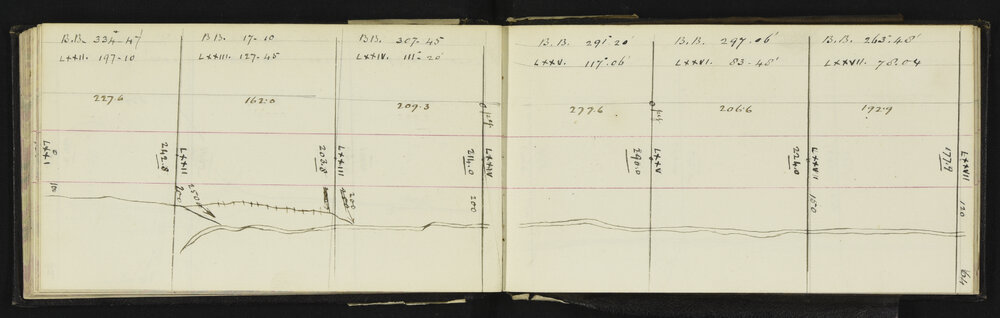 B.B. 334-47 B.B. 17-10 B.B. 307-45
LXXII. 197-10 LXXIII. 127-45 LXXIV. 111-20
227.6 162.0 209.3
LXXI
0
100
242.8
LXXII
200
250
203.8
LXXIII
200
214.0
LXXIV
200
B.B. 291°20' B.B. 297.06' B.B. 263°48'
LXXV. 117°06' LXXVI. 83-48' LXXVII. 78.04
277.6 206.6 192.9
290.0
LXXV
224.0
LXXVI
150
177.9
LXXVII
120
64